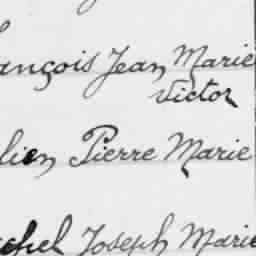 ançois Jean Marie
Victor
lien Pierre Marie
chel Joseph Marie